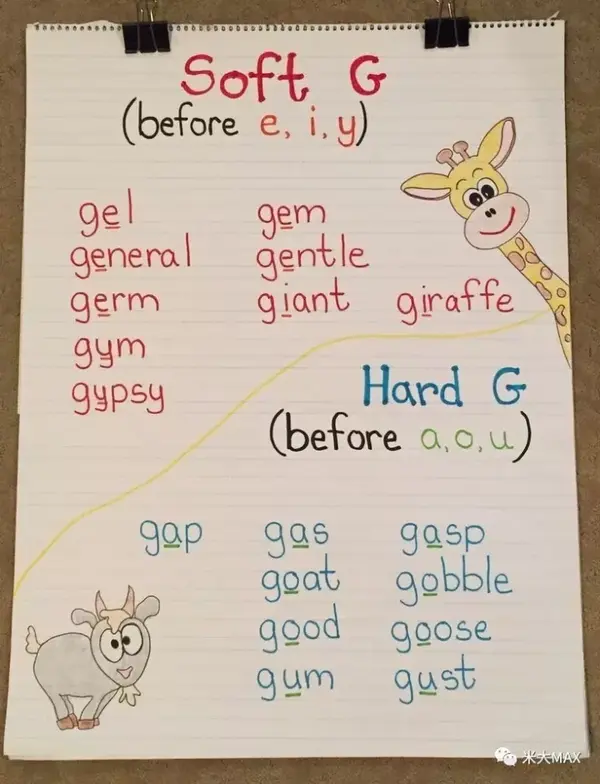 Soft G
(before e, i, y)
gel gem
general gentle
germ giant giraffe
gym
gypsy
Hard G
(before a, o, u)
gap gas gasp
goat gobble
good goose
gum gust
米大MAX